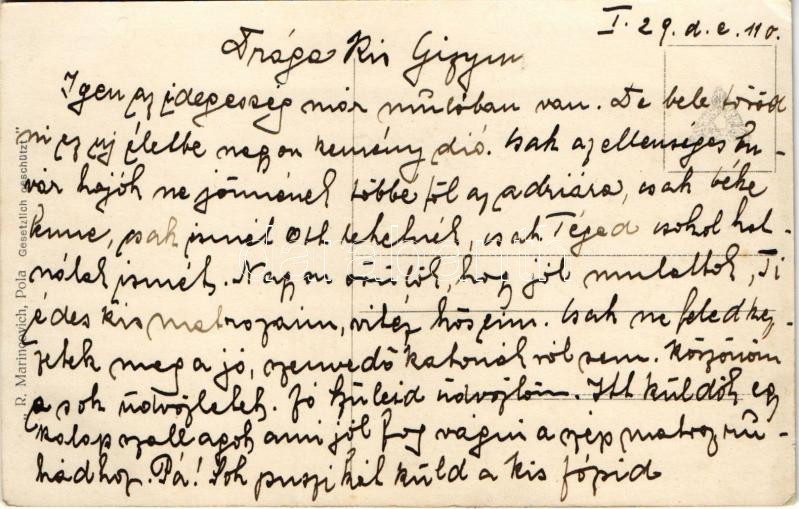 I. 29. d. e. 110.
Drága Kis Gizym
Igen az idegesség már mulóban van. De bele töröd
ni az uj életbe nagyon kemény dió. Csak az ellenséges bu-
vár hajók ne jönnének többé föl az adriára, csak béke
lenne, csak ismét Ott lehetnék, csak Téged csokol hat-
nálak ismét. Nagyon örülök, hogy jól mulattok, Ti
édes kis matrozaim, vitéz hőseim. Csak ne feledkez-
zetek meg a jó, szenvedő katonák ról sem. Köszönöm
a sok üdvözletek. Jó Szüleid üdvözlöm. Itt küldök egy
kalap szallagok ami jól fog vágni a szép matroz ru-
hádhoz. Pá! Sok puszikál küld a kis
R. Marincovich, Pola Gesetzlich geschützt